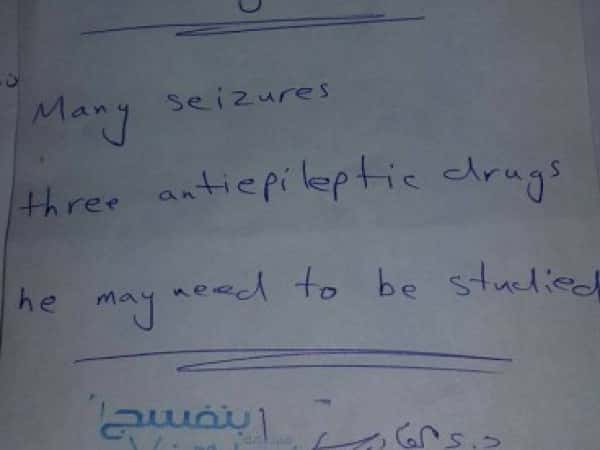 Many seizures
three antiepileptic drugs
he may need to be studied
بنفسج